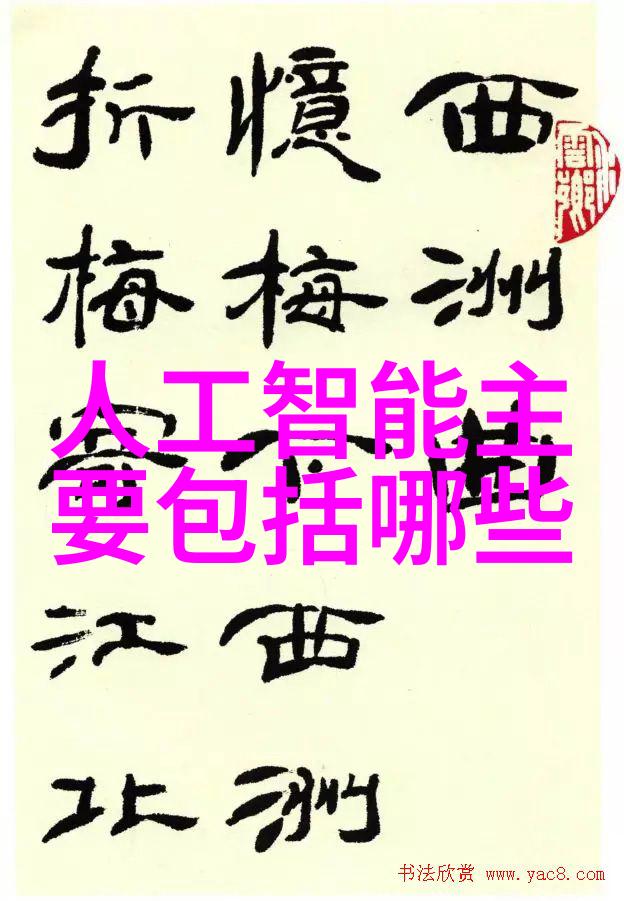 西洲曲
憶梅下西洲
折梅寄江北
人工智能主
要包括哪些
书法欣赏 www.yac8.com